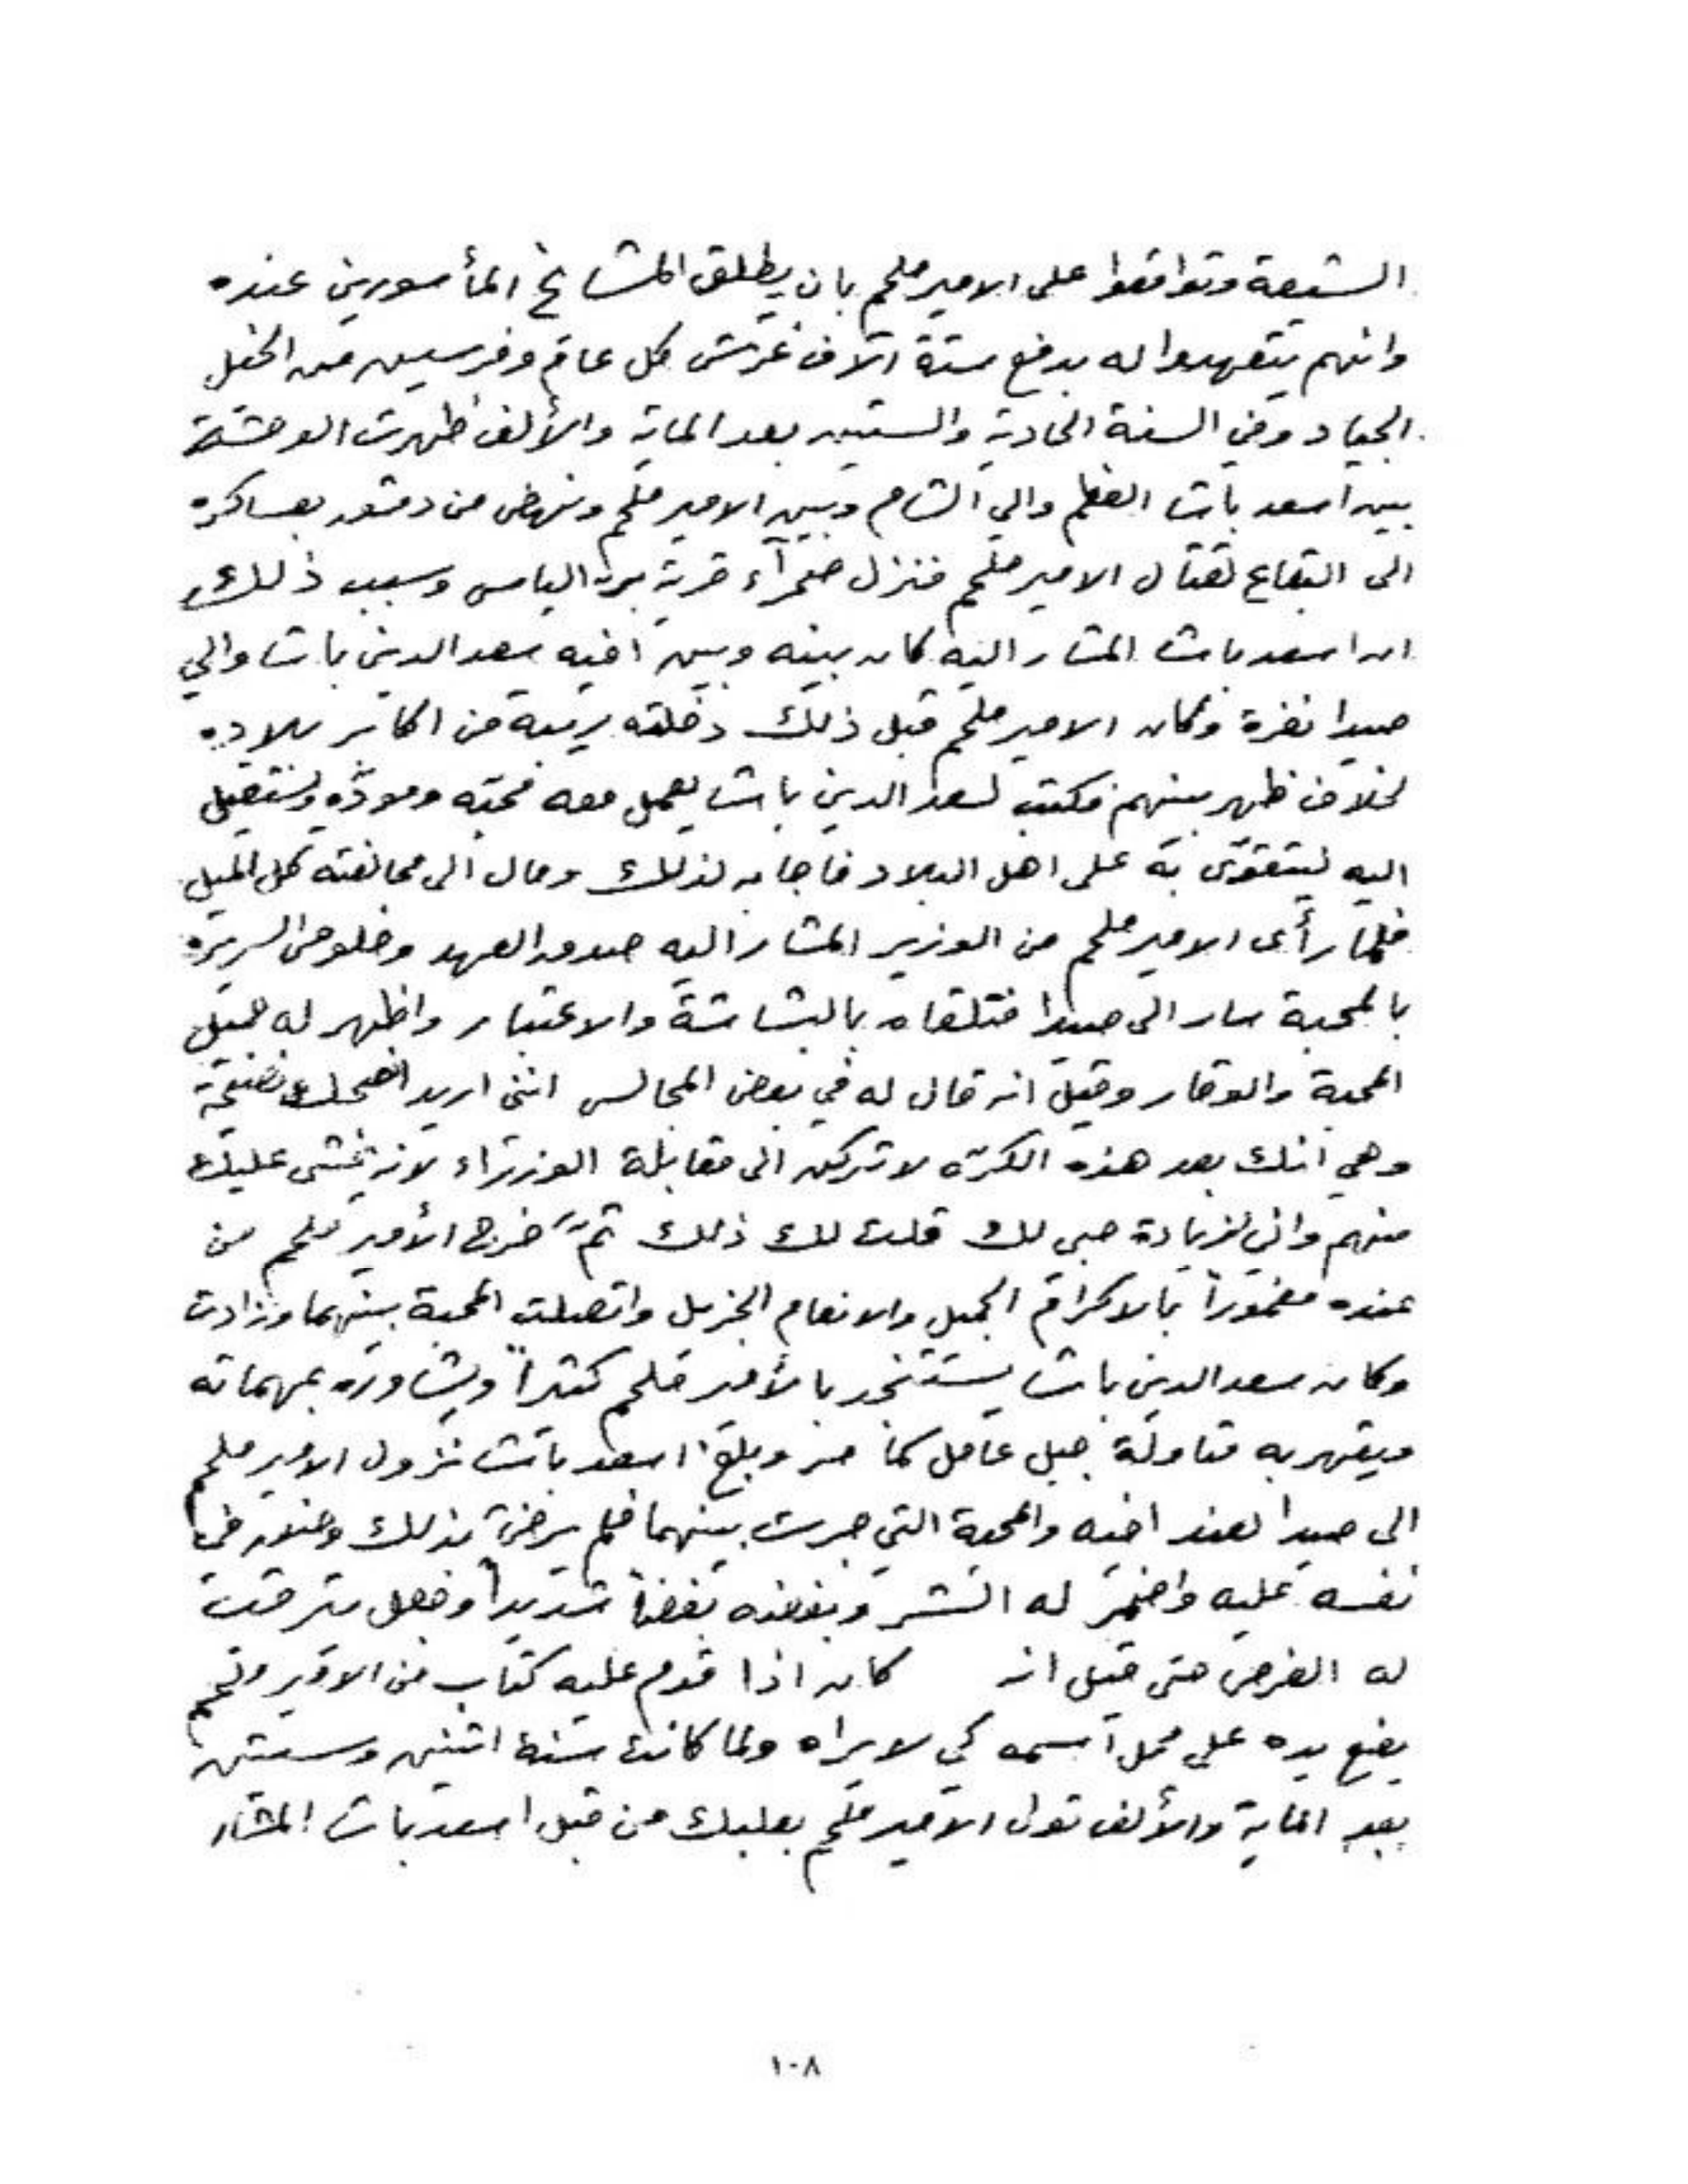 الشيعة وتوافقوا على الامير ملحم بان يطلق المشايخ المأسورين عنده
وانهم يتعهدوا له بدفع ستة آلاف غرش كل عام وفرسين من الخيل
الجياد وفي السنة الحادية والستين بعد الماية والألف ظهرت الوحشة
بين اسعد باشا العظم والي الشام وبين الامير ملحم ونهض من دمشق بعساكره
الى البقاع لقتال الامير ملحم فنزل صحرآء قرية بر الياس وسبب ذلك
ان اسعد باشا المشار اليه كان بينه وبين اخيه سعد الدين باشا والي
صيدا نفرة وكان الامير ملحم قبل ذلك دخلته ريبة من اكابر بلاده
لخلاف ظهر بينهم فكتب لسعد الدين باشا يعمل معه محبته ومودّه
اليه ليتقوّى به على اهل البلاد فاجابه لذلك ومال الى محالفته كل الميل
فلما رأى الامير ملحم من الوزير المشار اليه صدق العهد وخلوص السريرة
بالمحبة سار الى صيدا فتلقاه بالبشاشة والاعتبار واظهر له
المحبة والوقار وقيل انه قال له في بعض المجالس انني اريد انصحك نصيحة
وهي انك بعد هذه الكرّه لا تركن الى مقابلة الوزراء لانه يخشى عليك
منهم واني لزيادة حبي لك قلت لك ذلك ثمّ خرج الأمير ملحم من
عنده مغموراً بالاكرام الجميل والانعام الجزيل واتصلت المحبة بينهما وزادت
وكان سعد الدين باشا يستنجد بالأمير ملحم كثيراً ويشاوره بمهماته
ويقهر به متاولة جبل عامل كما مر وبلغ اسعد باشا نزول الامير ملحم
الى صيدا لعند اخيه والمحبة التي جرت بينهما فلم يرض بذلك في
نفسه عليه واضمر له الشر وبغضه بغضاً شديداً وجعل يترقب
له الفرص حتى قيل انه كان اذا قدم عليه كتاب من الامير ملحم
يضع يده على محل اسمه كي لا يراه ولما كانت سنة اثنين وستين
بعد الماية والألف تولى الامير ملحم بعلبك من قبل اسعد باشا المشار
١٠٨